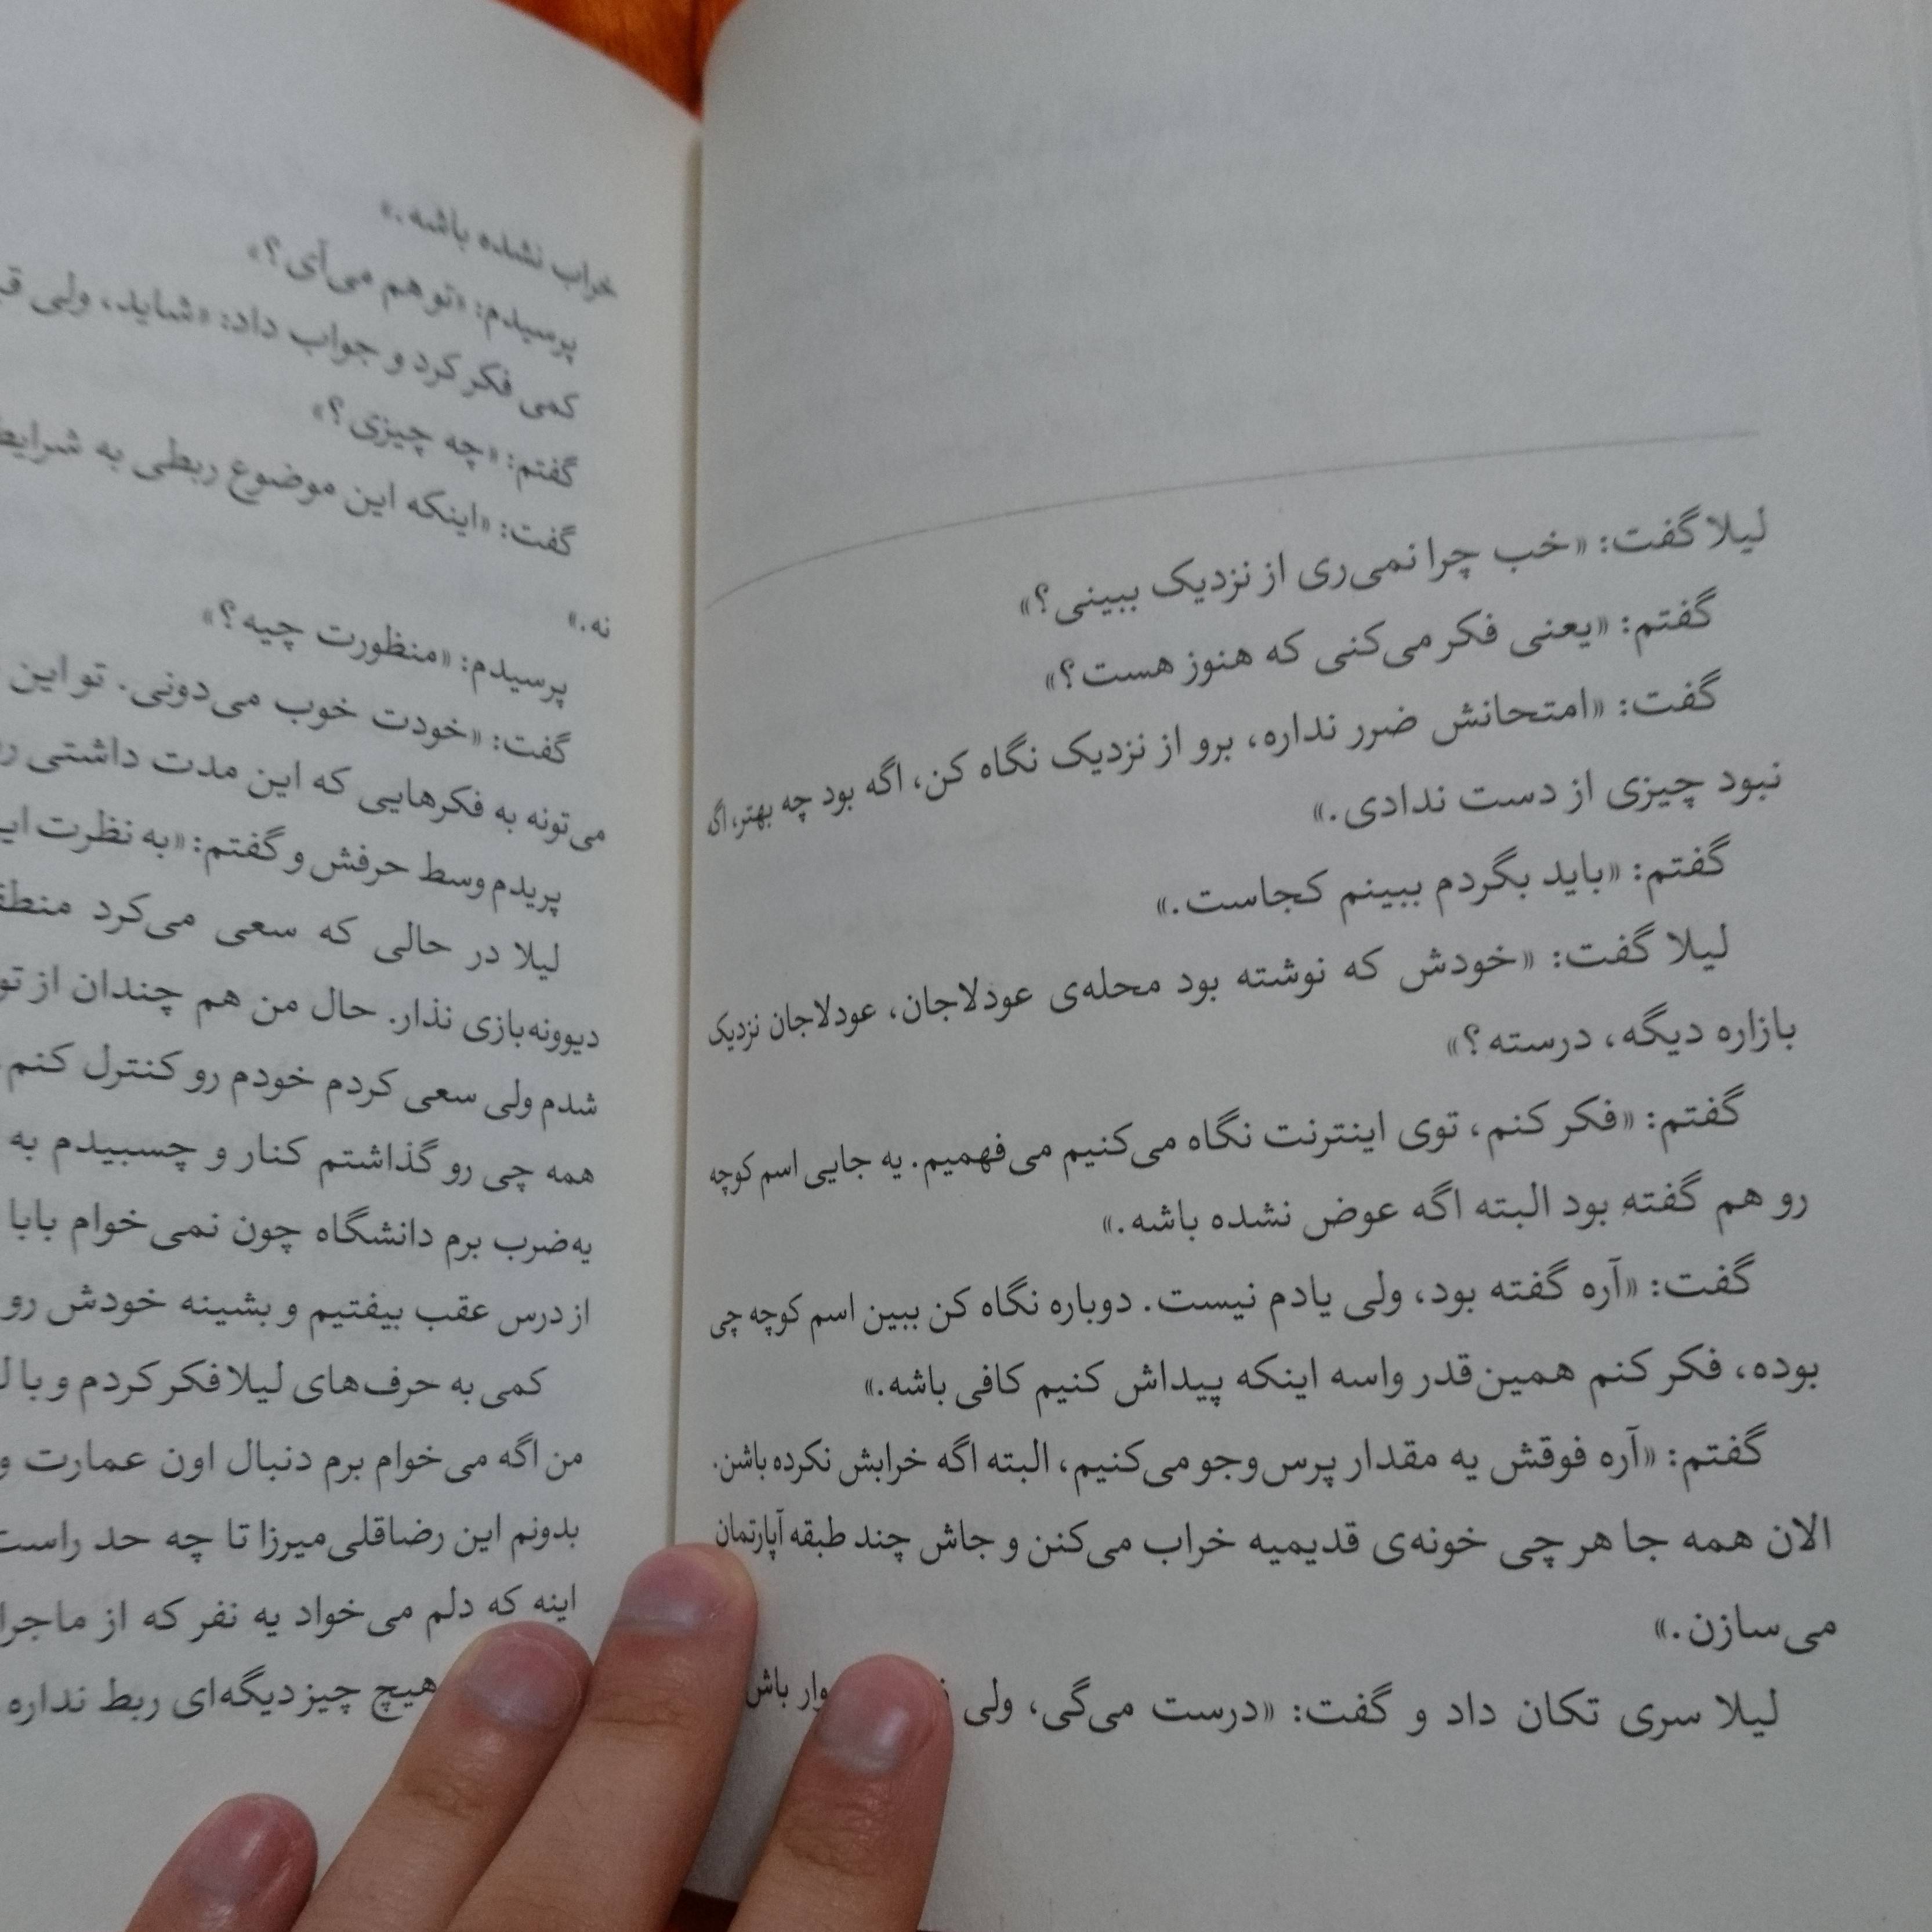 لیلا گفت: «خب چرا نمی‌ری از نزدیک ببینی؟»
گفتم: «یعنی فکر می‌کنی که هنوز هست؟»
گفت: «امتحانش ضرر نداره، برو از نزدیک نگاه کن، اگه بود چه بهتر، اگه
نبود چیزی از دست ندادی.»
گفتم: «باید بگردم ببینم کجاست.»
لیلا گفت: «خودش که نوشته بود محله‌ی عودلاجان، عودلاجان نزدیک
بازاره دیگه، درسته؟»
گفتم: «فکر کنم، توی اینترنت نگاه می‌کنیم می‌فهمیم. یه جایی اسم کوچه
رو هم گفته بود البته اگه عوض نشده باشه.»
گفت: «آره گفته بود، ولی یادم نیست. دوباره نگاه کن ببین اسم کوچه چی
بوده، فکر کنم همین‌قدر واسه اینکه پیداش کنیم کافی باشه.»
گفتم: «آره فوقش یه مقدار پرس‌وجو می‌کنیم، البته اگه خرابش نکرده باشن.
الان همه جا هر چی خونه‌ی قدیمیه خراب می‌کنن و جاش چند طبقه آپارتمان
می‌سازن.»
لیلا سری تکان داد و گفت: «درست می‌گی، ولی
خراب نشده باشه.»
پرسیدم: «تو هم می‌آی؟»
کمی فکر کرد و جواب داد: «شاید، ولی
گفتم: «چه چیزی؟»
گفت: «اینکه این موضوع ربطی به
نه.»
پرسیدم: «منظورت چیه؟»
گفت: «خودت خوب می‌دونی. تو این
می‌تونه به فکرهایی که این مدت داشتی
پریدم وسط حرفش و گفتم: «به نظرت
لیلا در حالی که سعی می‌کرد
دیوونه‌بازی نذار. حال من هم چندان از
شدم ولی سعی کردم خودم رو کنترل کنم
همه چی رو گذاشتم کنار و چسبیدم به
یه‌ضرب برم دانشگاه چون نمی‌خوام بابا
از درس عقب بیفتیم و بشینه خودش رو
کمی به حرف‌های لیلا فکر کردم و با
من اگه می‌خوام برم دنبال اون عمارت و
بدونم این رضاقلی‌میرزا تا چه حد
اینه که دلم می‌خواد یه نفر که از
هیچ چیز دیگه‌ای ربط نداره